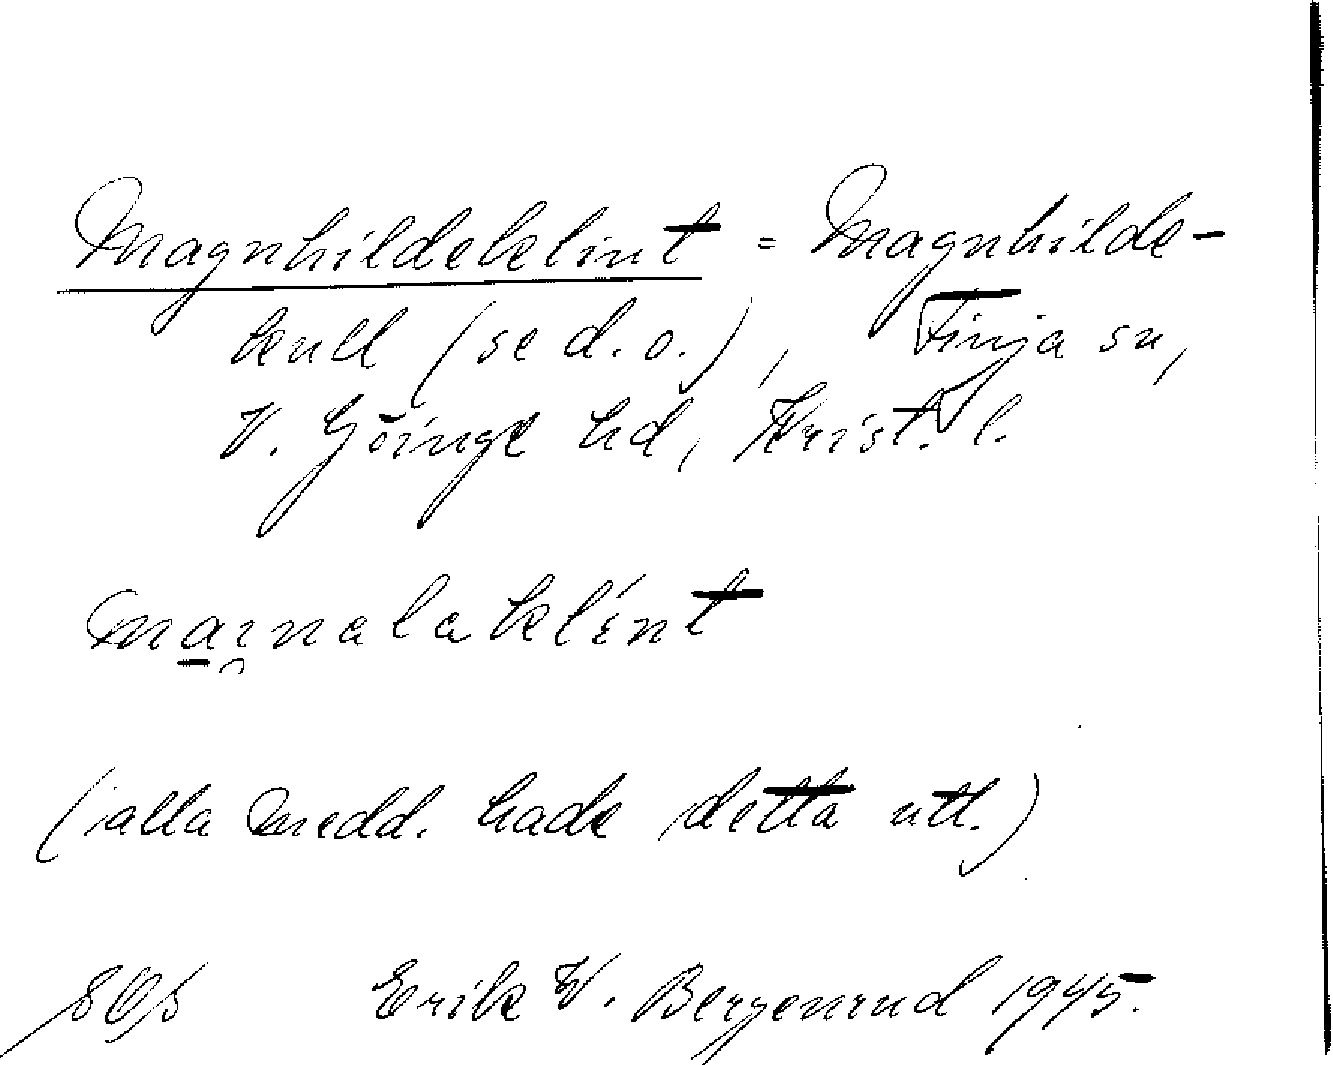 Magnhildeklint = Magnhilde-
kull (se d. o.), Finja sn,
V. Göinge hd, Krist. l.
maɪ̯nalaklint
(alla medd. hade detta utt.)
Erik W. Bergenrud 1945.